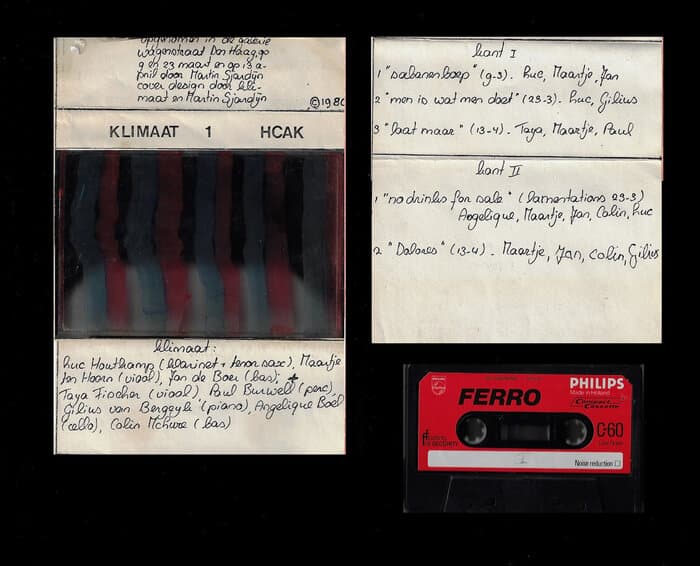 opgenomen in de galerie
wagenstraat Den Haag, op
9 en 23 maart en op 13 a-
pril door Martin Sjardijn
cover design door kli-
maat en Martin Sjardijn
©1980
KLIMAAT 1 HCAK
klimaat:
Luc Houtkamp (klarinet + tenorsax), Maartje
ten Hoorn (viool), Jan de Boer (bas); +
Taya Fischer (viool) Paul Burwell (perc)
Gilius van Bergeyk (piano), Angelique Boel
(cello), Colin McLure (bas)
kant I
1 "sabanenloep" (9-3). Luc, Maartje, Jan
2 "men is wat men doet" (23-3). Luc, Gilius
3 "laat maar" (13-4). Taya, Maartje, Paul
kant II
1 "no drinks for sale" (lamentations 23-3)
Angelique, Maartje, Jan, Colin, Luc
2 "Dolores" (13-4). Maartje, Jan, Colin, Gilius
PHILIPS
Made in Holland
FERRO
Compact Cassette
C-60
SECURITY
1
Noise reduction